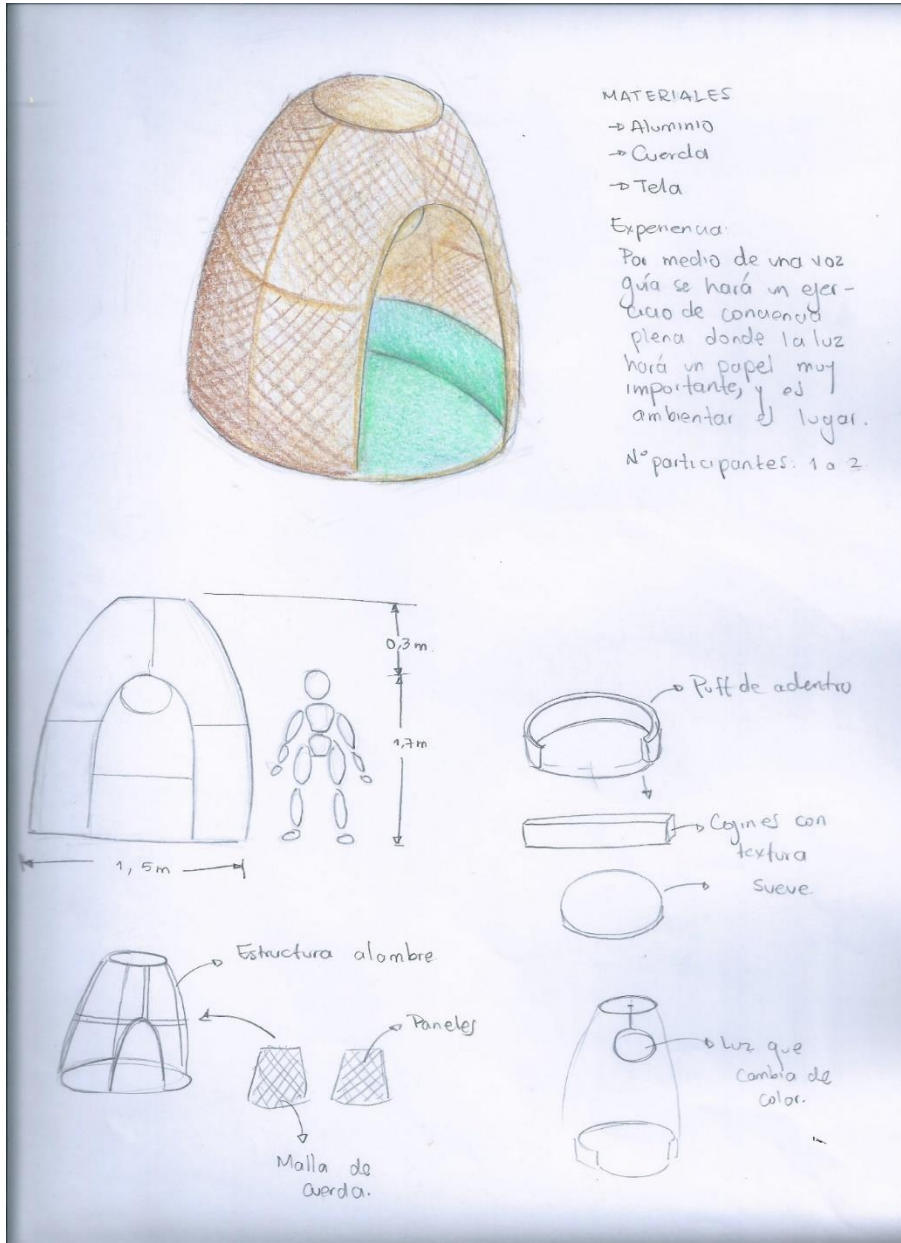 MATERIALES
→ Aluminio
→ Cuerda
→ Tela
Experiencia:
Por medio de una voz
guía se hará un ejer-
cicio de conciencia
plena donde la luz
hará un papel muy
importante, y es
ambientar el lugar.
N° participantes: 1 a 2
0,3 m.
1,7 m
1,5 m
Puff de adentro
Cojines con
textura
Sueve
Estructura alambre
Paneles
Malla de
cuerda.
Luz que
cambia de
color.